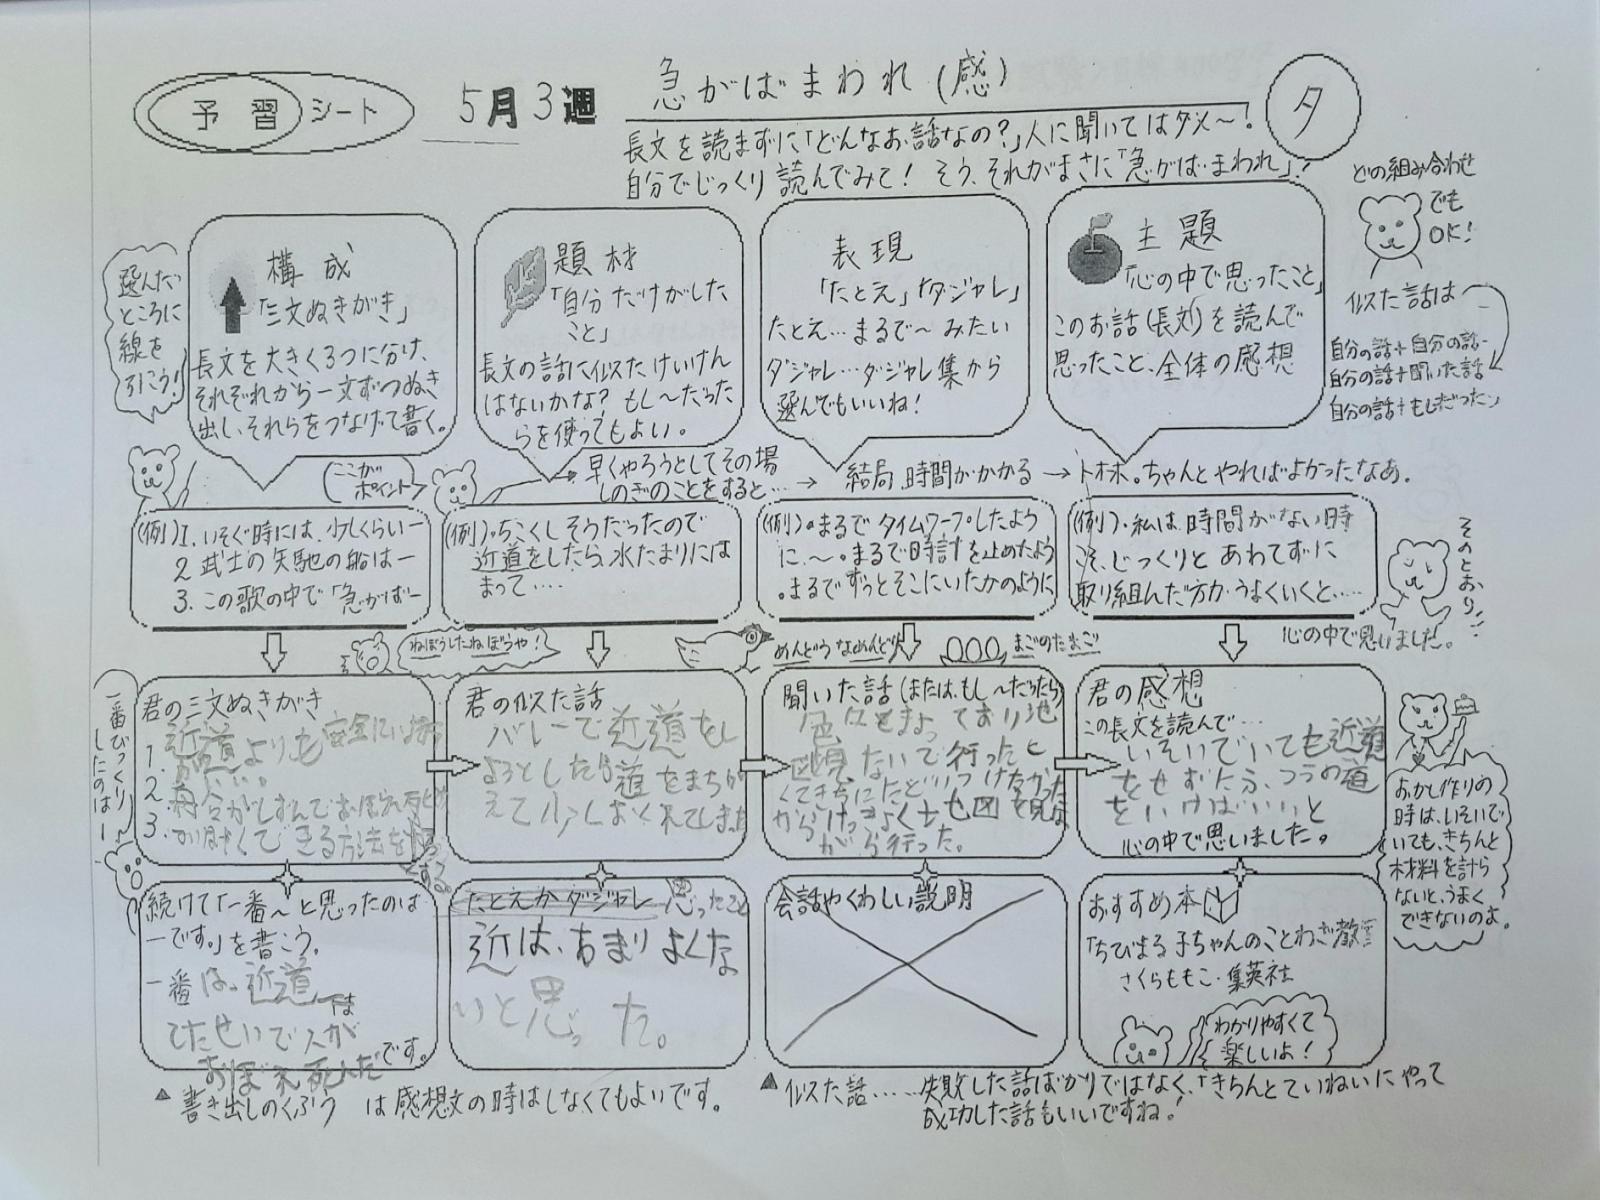 予習シート
5月3週
急がばまわれ(感)
夕
長文を読まずに「どんなお話なの?」人に聞いてはダメ〜!
自分でじっくり読んでみて! そう、それがまさに「急がば・まわれ」!
選んだ
ところに
線を
引こう!
構成
「三文ぬきがき」
長文を大きく3つに分け、
それぞれから一文ずつぬき
出し、それらをつなげて書く。
題材
「自分だけがした
こと」
長文の話に似たけいけん
はないかな? もし〜だった
らを使ってもよい。
表現
「たとえ」「ダジャレ」
たとえ…まるで〜みたい
ダジャレ…ダジャレ集から
選んでもいいね!
主題
「心の中で思ったこと」
このお話(長文)を読んで
思ったこと、全体の感想
どの組み合わせ
でも
OK!
似た話は
自分の話+自分の話
自分の話+聞いた話
自分の話+もしだったら
ここが
ポイント
早くやろうとしてその場
しのぎのことをすると…
→ 結局、時間がかかる → トホホ。ちゃんとやればよかったなあ。
(例)1. いそぐ時には、少しくらいー
2 武士の矢馳の船はー
3. この歌の中で「急がばー
(例)・ちこくしそうだったので
近道をしたら、水たまりには
まって……
(例)・まるでタイムワープしたよう
に〜。・まるで時計を止めたよう
・まるでずっとそこにいたかのように
(例)・私は、時間がない時
こそ、じっくりとあわてずに
取り組んだ方がうまくいくと……
心の中で思いました。
そのとおり!!
ねぼうしたねぼうや!
めんどうなめんどり
まごのたまご
一番びっくり
したのはー
君の三文ぬきがき
1.
2.
3.
近道よりも安全に
君の似た話
バレーで近道をし
ようとしたら道をまちが
えて少しおくれてしまった
聞いた話(または、もし〜だったら)
ないで行ったら
地図を見な
がら行った。
君の感想
この長文を読んで…
いそいでいても近道
をせずに、ふつうの道
をいけばいいと
心の中で思いました。
おかし作りの
時は、いそいで
いても、きちんと
材料を計ら
ないと、うまく
できないのよ。
続けて「一番〜と思ったのは
ーです。」を書こう。
一番は、近道
したせいで人が
おぼれ死んだです。
たとえかダジャレ 思ったこと
近は、あまりよくな
いと思った。
会話やくわしい説明
おすすめ本
「ちびまる子ちゃんのことわざ教室」
さくらももこ・集英社
わかりやすくて
楽しいよ!
▲ 書き出しのくふうは感想文の時はしなくてもよいです。
▲ 似た話……失敗した話ばかりではなく、「きちんとていねいにやって
成功した話もいいですね!